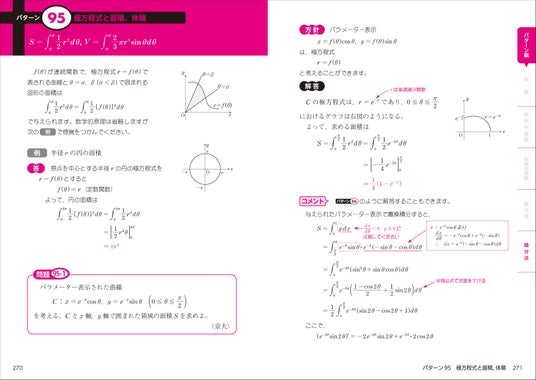 パターン 95 極方程式と面積，体積
S = ∫_α^β 1/2 r² dθ, V = ∫_α^β 2/3 πr³ sinθdθ
f(θ)が連続関数で，極方程式 r=f(θ)で
表される曲線とθ=α，β(α<β)で囲まれる
図形の面積は
∫_α^β 1/2 r² dθ = ∫_α^β 1/2 {f(θ)}² dθ
で与えられます。数学的な原理は省略しますが
次の 例 で感覚をつかんでください。
θ=β
θ=α
r=f(θ)
O
例 半径 r の円の面積
答 原点を中心とする半径 r の円の極方程式を
r=f(θ)とすると
f(θ)=r（定数関数）
よって，円の面積は
∫_0^{2π} 1/2 {f(θ)}² dθ = ∫_0^{2π} 1/2 r² dθ
= [1/2 r²θ]_0^{2π}
= πr²
r
-r
O
r
-r
問題 95-1
パラメーター表示された曲線
C：x=e^{-θ}cosθ，y=e^{-θ}sinθ (0≦θ≦π/2)
を考える。C と x 軸，y 軸で囲まれた領域の面積 S を求めよ。
（京大）
270
方針 パラメーター表示
x=f(θ)cosθ，y=f(θ)sinθ
は，極方程式
r=f(θ)
と考えることができます。
解答
は単調減少関数
C の極方程式は，r=e^{-θ} であり，0≦θ≦π/2
におけるグラフは右図のようになる。
よって，求める面積は
S = ∫_0^{π/2} 1/2 r² dθ = ∫_0^{π/2} 1/2 e^{-2θ} dθ
= [-1/4 e^{-2θ}]_0^{π/2}
= 1/4 (1-e^{-π})
r=e^{-θ}
O
1
コメント パターン 94 のように解答することもできます。
与えられたパラメーター表示で置換積分すると，
S = ∫_0^1 ydx
= ∫_{π/2}^0 e^{-θ}sinθ・e^{-θ}(-sinθ-cosθ)dθ
= ∫_0^{π/2} e^{-2θ}(sin²θ+sinθcosθ)dθ
半角公式で次数を下げる
= ∫_0^{π/2} e^{-2θ}((1-cos2θ)/2 + 1/2 sin2θ)dθ
= 1/2 ∫_0^{π/2} e^{-2θ}(sin2θ-cos2θ+1)dθ
ここで，
(e^{-2θ}sin2θ)′ = -2e^{-2θ}sin2θ + e^{-2θ}・2cos2θ
パターン編
積分法
パターン 95 極方程式と面積，体積 271